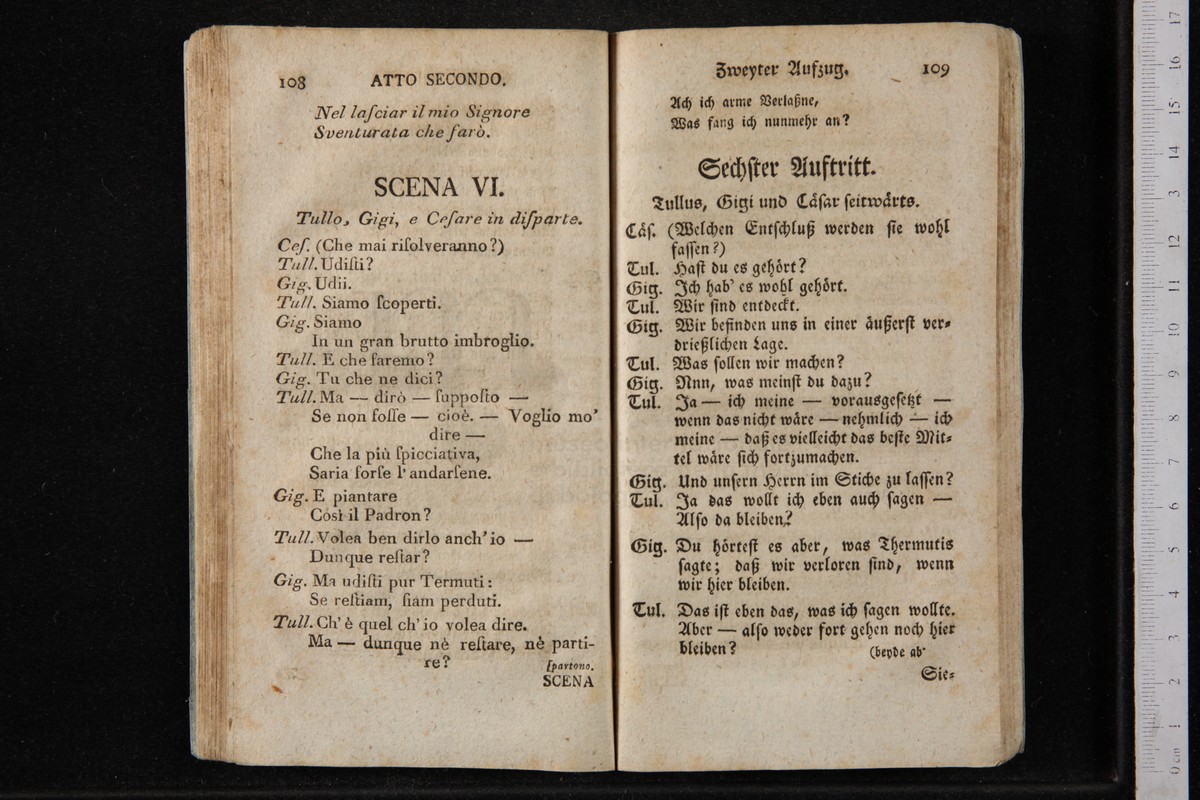 108 ATTO SECONDO.
Nel laſciar il mio Signore
Sventurata che ſarò.
SCENA VI.
Tullo, Gigi, e Ceſare in diſparte.
Ceſ. (Che mai riſolveranno?)
Tull. Udiſti?
Gig. Udii.
Tull. Siamo ſcoperti.
Gig. Siamo
In un gran brutto imbroglio.
Tull. E che faremo?
Gig. Tu che ne dici?
Tull. Ma — dirò — ſuppoſto —
Se non foſſe — cioè. — Voglio mo'
dire —
Che la più ſpicciativa,
Saria forſe l' andarſene.
Gig. E piantare
Così il Padron?
Tull. Volea ben dirlo anch' io —
Dunque reſtar?
Gig. Ma udiſti pur Termuti:
Se reſtiam, ſiam perduti.
Tull. Ch' è quel ch' io volea dire.
Ma — dunque nè reſtare, nè parti-
re? [partono.
SCENA
Zweyter Aufzug. 109
Ach ich arme Verlaßne,
Was fang ich nunmehr an?
Sechſter Auftritt.
Tullus, Gigi und Cäſar ſeitwärts.
Cäſ. (Welchen Entſchluß werden ſie wohl
faſſen?)
Tul. Haſt du es gehört?
Gig. Ich hab' es wohl gehört.
Tul. Wir ſind entdeckt.
Gig. Wir befinden uns in einer äußerſt ver-
drießlichen Lage.
Tul. Was ſollen wir machen?
Gig. Nnn, was meinſt du dazu?
Tul. Ja — ich meine — vorausgeſetzt —
wenn das nicht wäre — nehmlich — ich
meine — daß es vielleicht das beſte Mit-
tel wäre ſich fortzumachen.
Gig. Und unſern Herrn im Stiche zu laſſen?
Tul. Ja das wollt ich eben auch ſagen —
Alſo da bleiben?
Gig. Du hörteſt es aber, was Thermutis
ſagte; daß wir verloren ſind, wenn
wir hier bleiben.
Tul. Das iſt eben das, was ich ſagen wollte.
Aber — alſo weder fort gehen noch hier
bleiben? (beyde ab'
Sie-